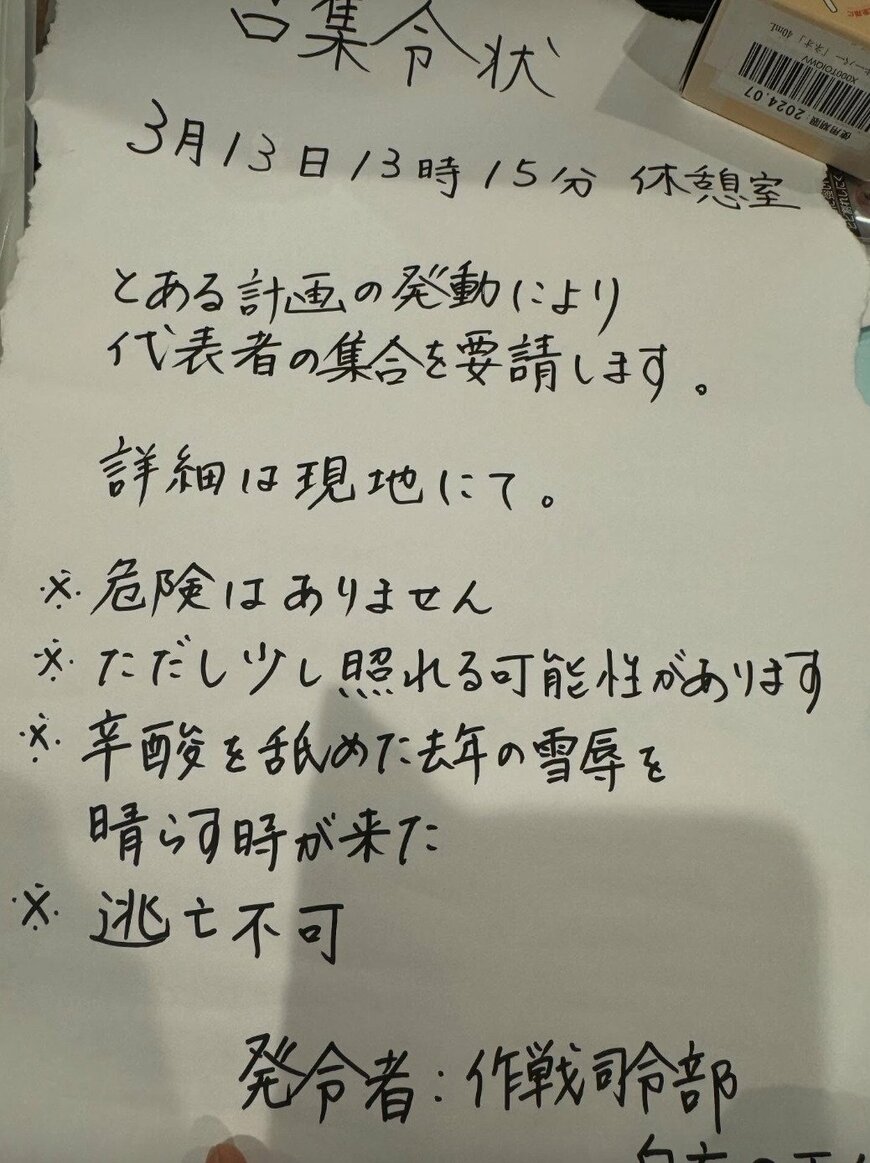 召集令状
3月13日13時15分 休憩室
とある計画の発動により
代表者の集合を要請します。
詳細は現地にて。
※危険はありません
※ただし少し照れる可能性があります
※辛酸を舐めた去年の雪辱を
晴らす時が来た
※逃亡不可
発令者:作戦司令部
ーパー「ネオ」40mL
X000TOIQWV
使用期限 2024.07